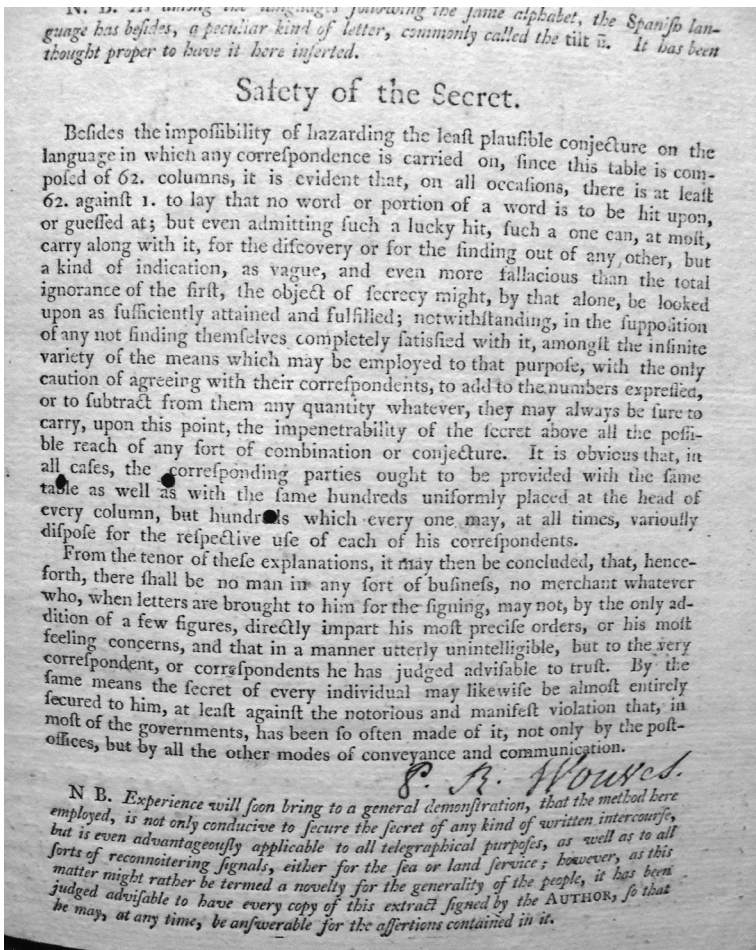 N. B. As among the languages following the ſame alphabet, the Spaniſh lan-
guage has beſides, a peculiar kind of letter, commonly called the tilt ñ. It has been
thought proper to have it here inſerted.
Safety of the Secret.
Beſides the impoſſibility of hazarding the leaſt plauſible conjecture on the
language in which any correſpondence is carried on, ſince this table is com-
poſed of 62. columns, it is evident that, on all occaſions, there is at leaſt
62. againſt 1. to lay that no word or portion of a word is to be hit upon,
or gueſſed at; but even admitting ſuch a lucky hit, ſuch a one can, at moſt,
carry along with it, for the diſcovery or for the finding out of any other, but
a kind of indication, as vague, and even more fallacious than the total
ignorance of the firſt, the object of ſecrecy might, by that alone, be looked
upon as ſufficiently attained and fulfilled; notwithſtanding, in the ſuppoſition
of any not finding themſelves completely ſatisfied with it, amongſt the infinite
variety of the means which may be employed to that purpoſe, with the only
caution of agreeing with their correſpondents, to add to the numbers expreſſed,
or to ſubtract from them any quantity whatever, they may always be ſure to
carry, upon this point, the impenetrability of the ſecret above all the poſſi-
ble reach of any ſort of combination or conjecture. It is obvious that, in
all caſes, the correſponding parties ought to be provided with the ſame
table as well as with the ſame hundreds uniformly placed at the head of
every column, but hundreds which every one may, at all times, variouſly
diſpoſe for the reſpective uſe of each of his correſpondents.
From the tenor of theſe explanations, it may then be concluded, that, hence-
forth, there ſhall be no man in any ſort of buſineſs, no merchant whatever
who, when letters are brought to him for the ſigning, may not, by the only ad-
dition of a few figures, directly impart his moſt preciſe orders, or his moſt
feeling concerns, and that in a manner utterly unintelligible, but to the very
correſpondent, or correſpondents he has judged adviſable to truſt. By the
ſame means the ſecret of every individual may likewiſe be almoſt entirely
ſecured to him, at leaſt againſt the notorious and manifeſt violation that, in
moſt of the governments, has been ſo often made of it, not only by the poſt-
offices, but by all the other modes of conveyance and communication.
P. R. Wouves.
N B. Experience will ſoon bring to a general demonſtration, that the method here
employed, is not only conducive to ſecure the ſecret of any kind of written intercourſe,
but is even advantageouſly applicable to all telegraphical purpoſes, as well as to all
ſorts of reconnoitering ſignals, either for the ſea or land ſervice; however, as this
matter might rather be termed a novelty for the generality of the people, it has been
judged adviſable to have every copy of this extract ſigned by the AUTHOR, ſo that
he may, at any time, be anſwerable for the aſſertions contained in it.